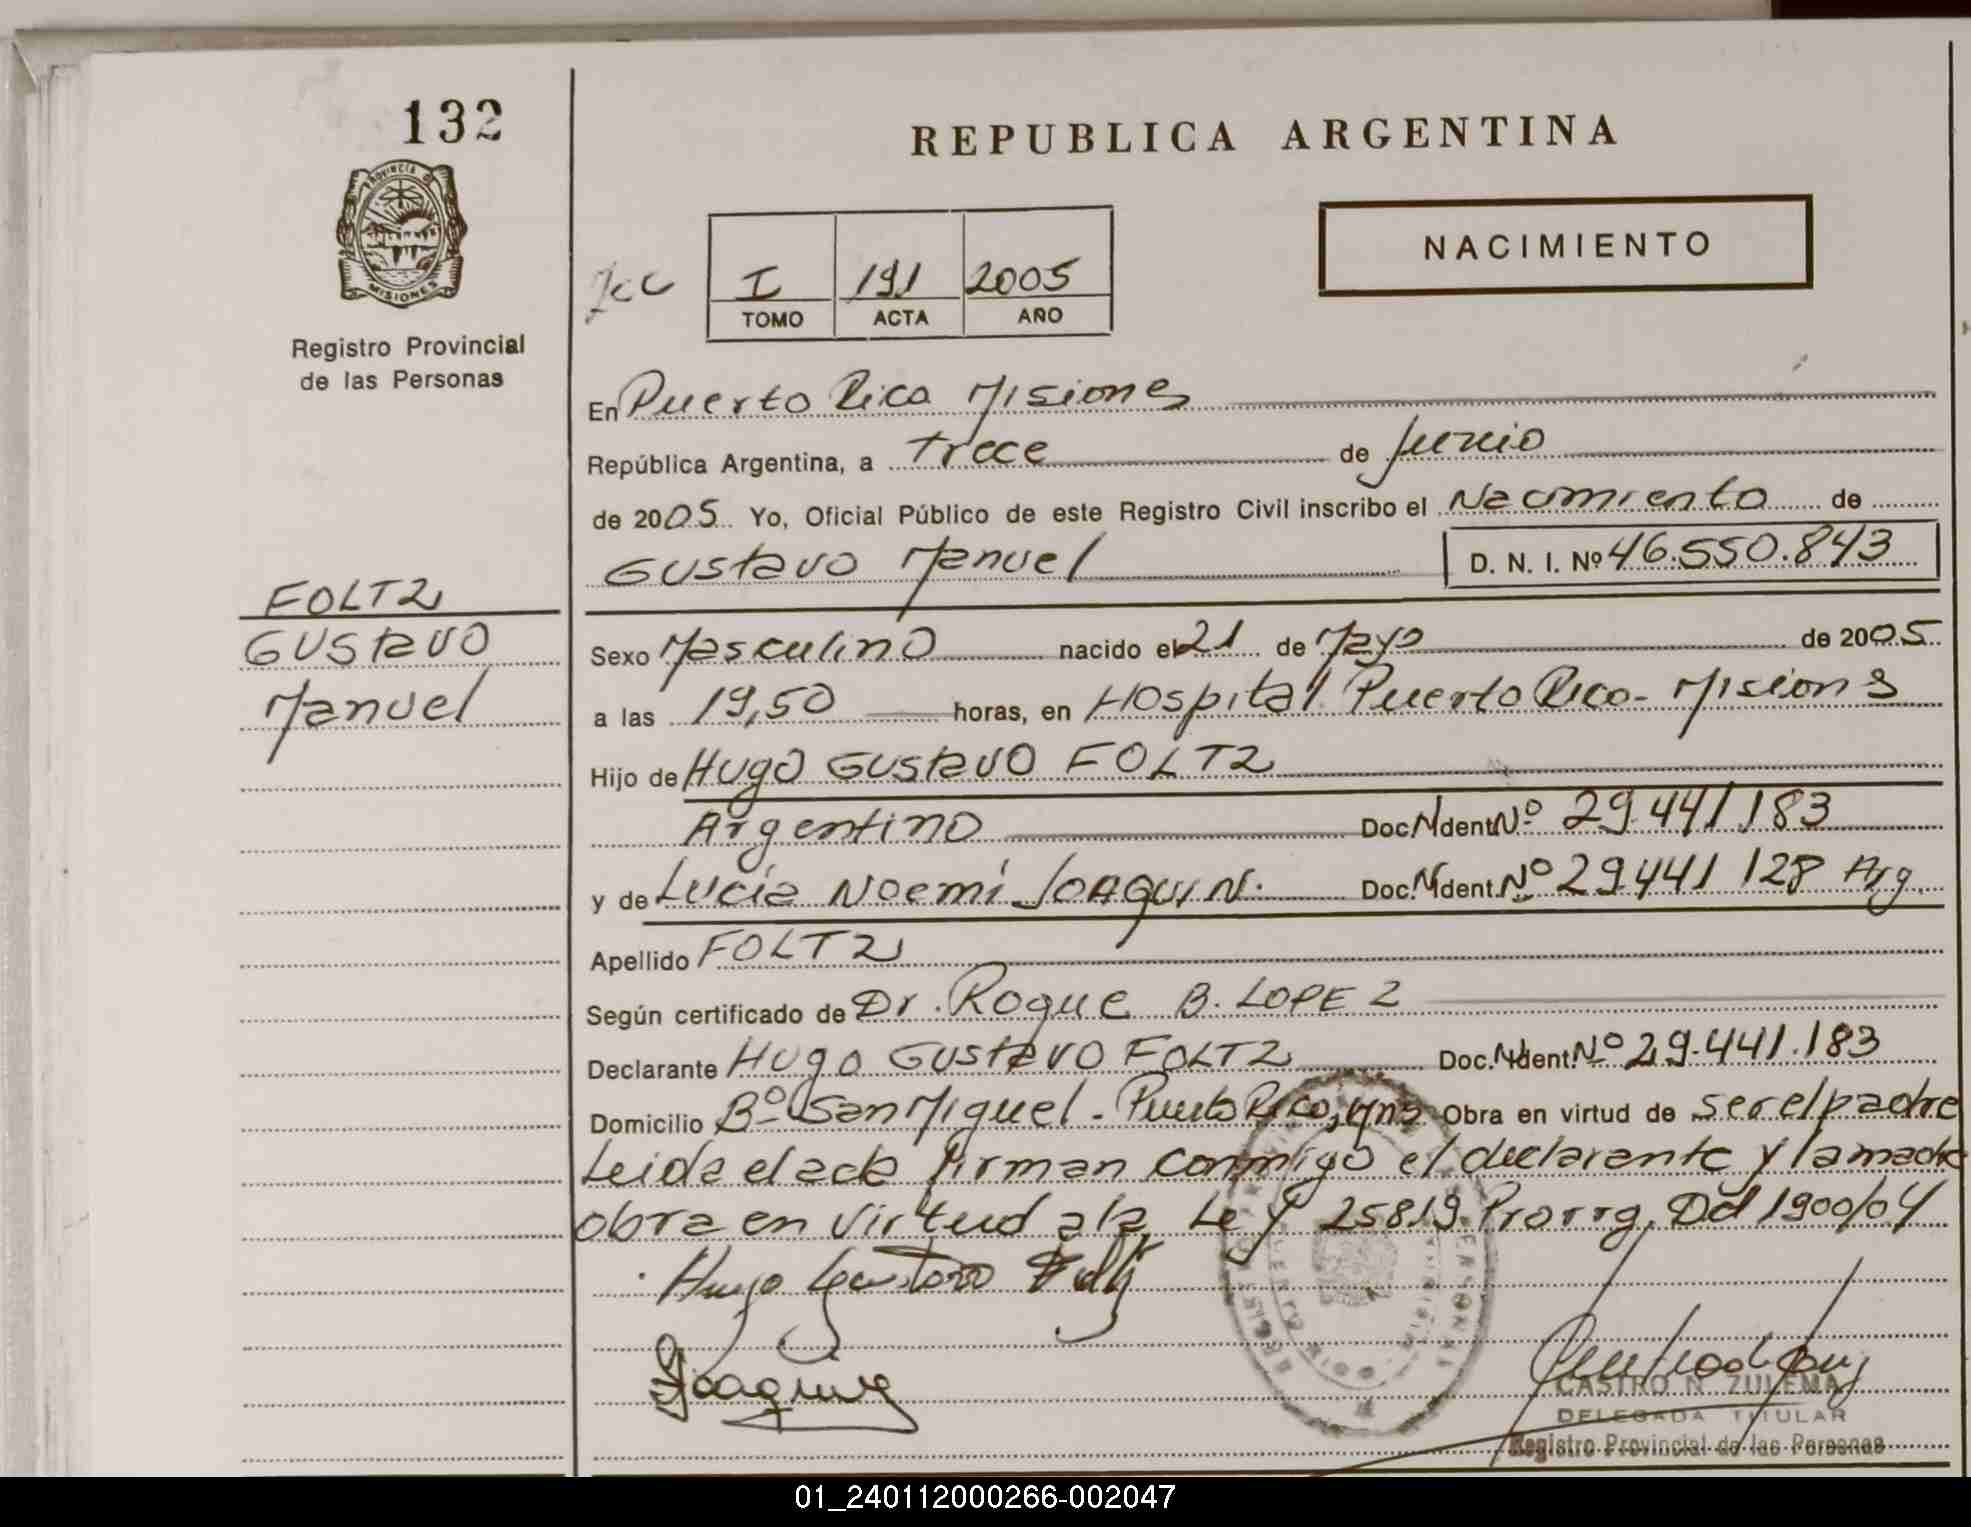 132
REPUBLICA ARGENTINA
PROVINCIA DE
MISIONES
Registro Provincial
de las Personas
NACIMIENTO
I 191 2005
TOMO ACTA AÑO
En Puerto Rico Misiones
República Argentina, a trece de Junio
de 2005 Yo, Oficial Público de este Registro Civil inscribo el Nacimiento de
Gustavo Manuel D. N. I. Nº 46.550.843
FOLTZ
Gustavo
Manuel
Sexo Masculino nacido el 21 de Mayo de 2005
a las 19,50 horas, en Hospital Puerto Rico - Misiones
Hijo de Hugo Gustavo FOLTZ
Argentino Doc. Ident. Nº 29.441.183
y de Lucia Noemí JOAQUIN. Doc. Ident. Nº 29.441.128 Arg.
Apellido FOLTZ
Según certificado de Dr. Roque B. LOPEZ
Declarante Hugo Gustavo FOLTZ Doc. Ident. Nº 29.441.183
Domicilio Bº San Miguel - Puerto Rico, Mnes Obra en virtud de ser el padre
Leida el acta firman conmigo el declarante y la madre
obra en virtud a la Ley 25819 Prorrg. Dd 1900/04
Hugo Gustavo Foltz
Joaquin
CASTRO N. ZULEMA
DELEGADA TITULAR
Registro Provincial de las Personas
01_240112000266-002047